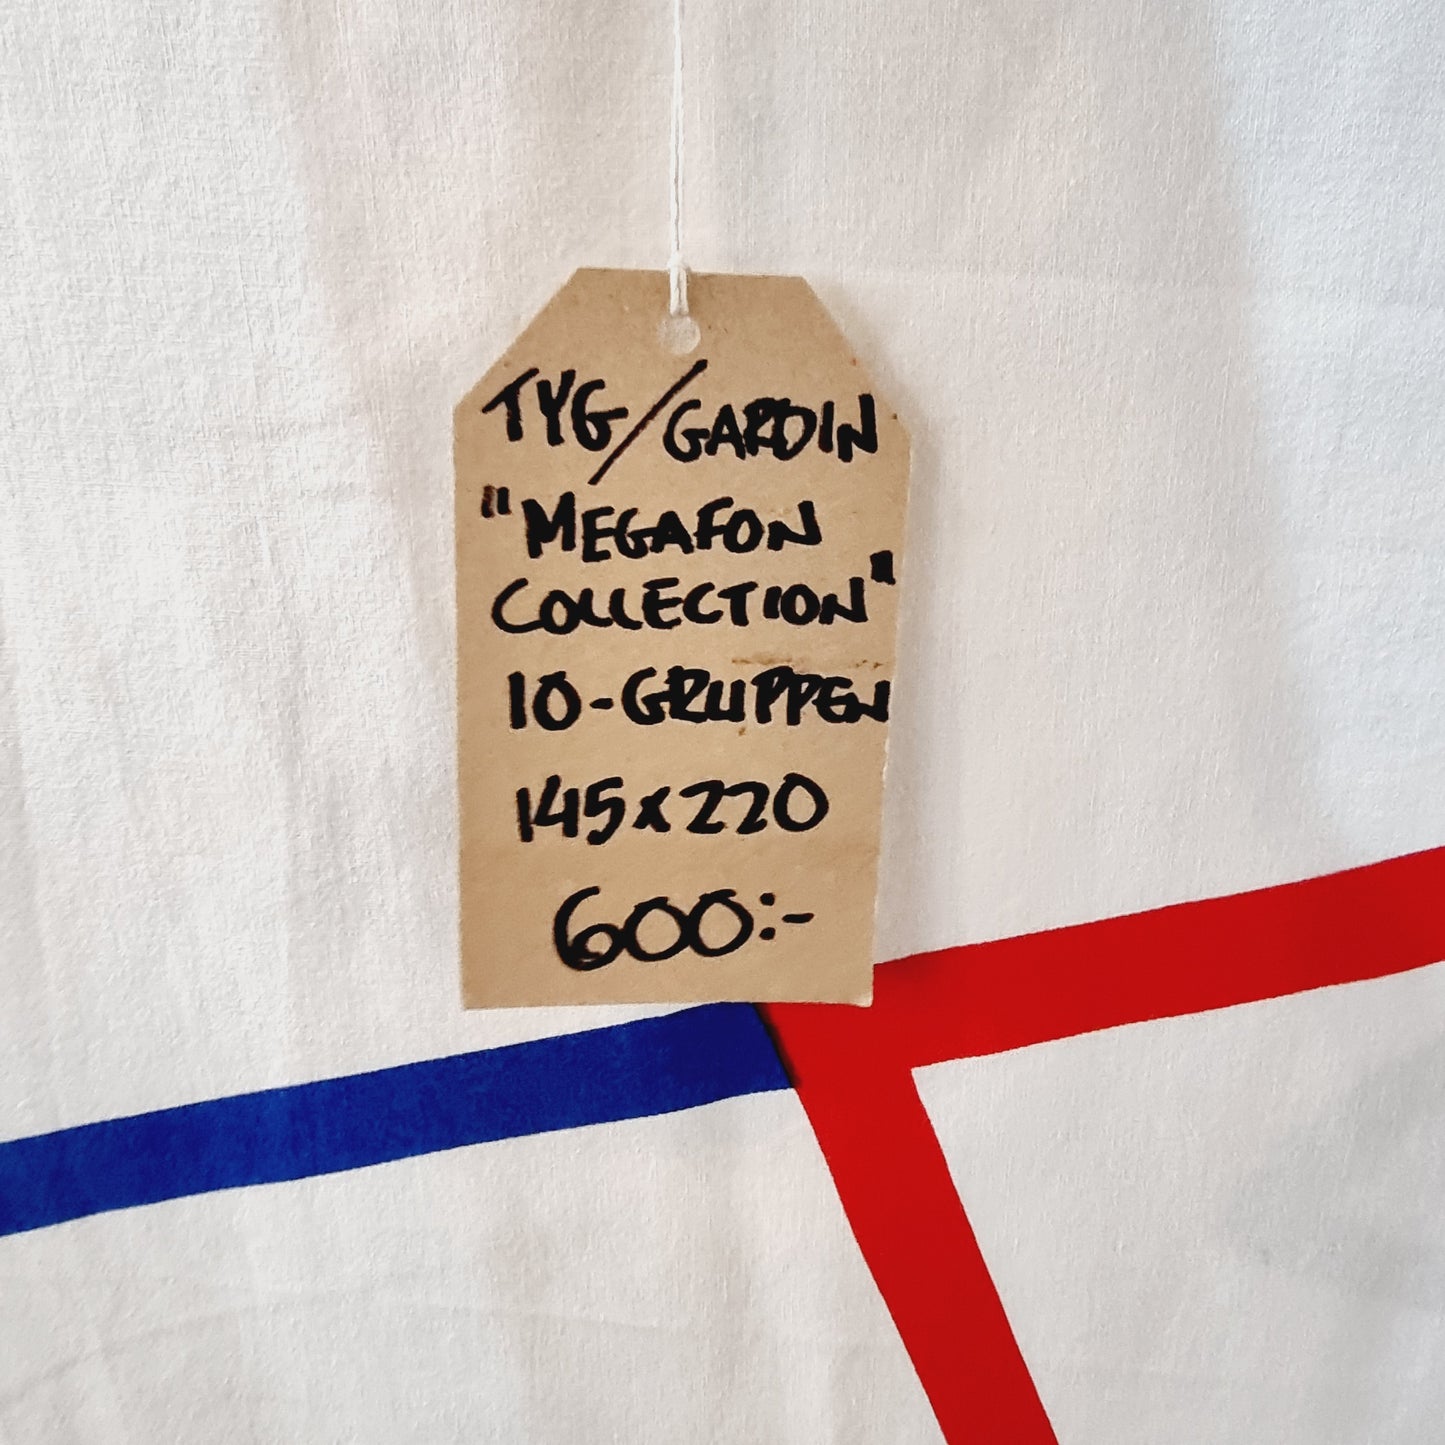 TYG/GARDIN
"MEGAFON
COLLECTION"
10-GRUPPEN
145x220
600:-